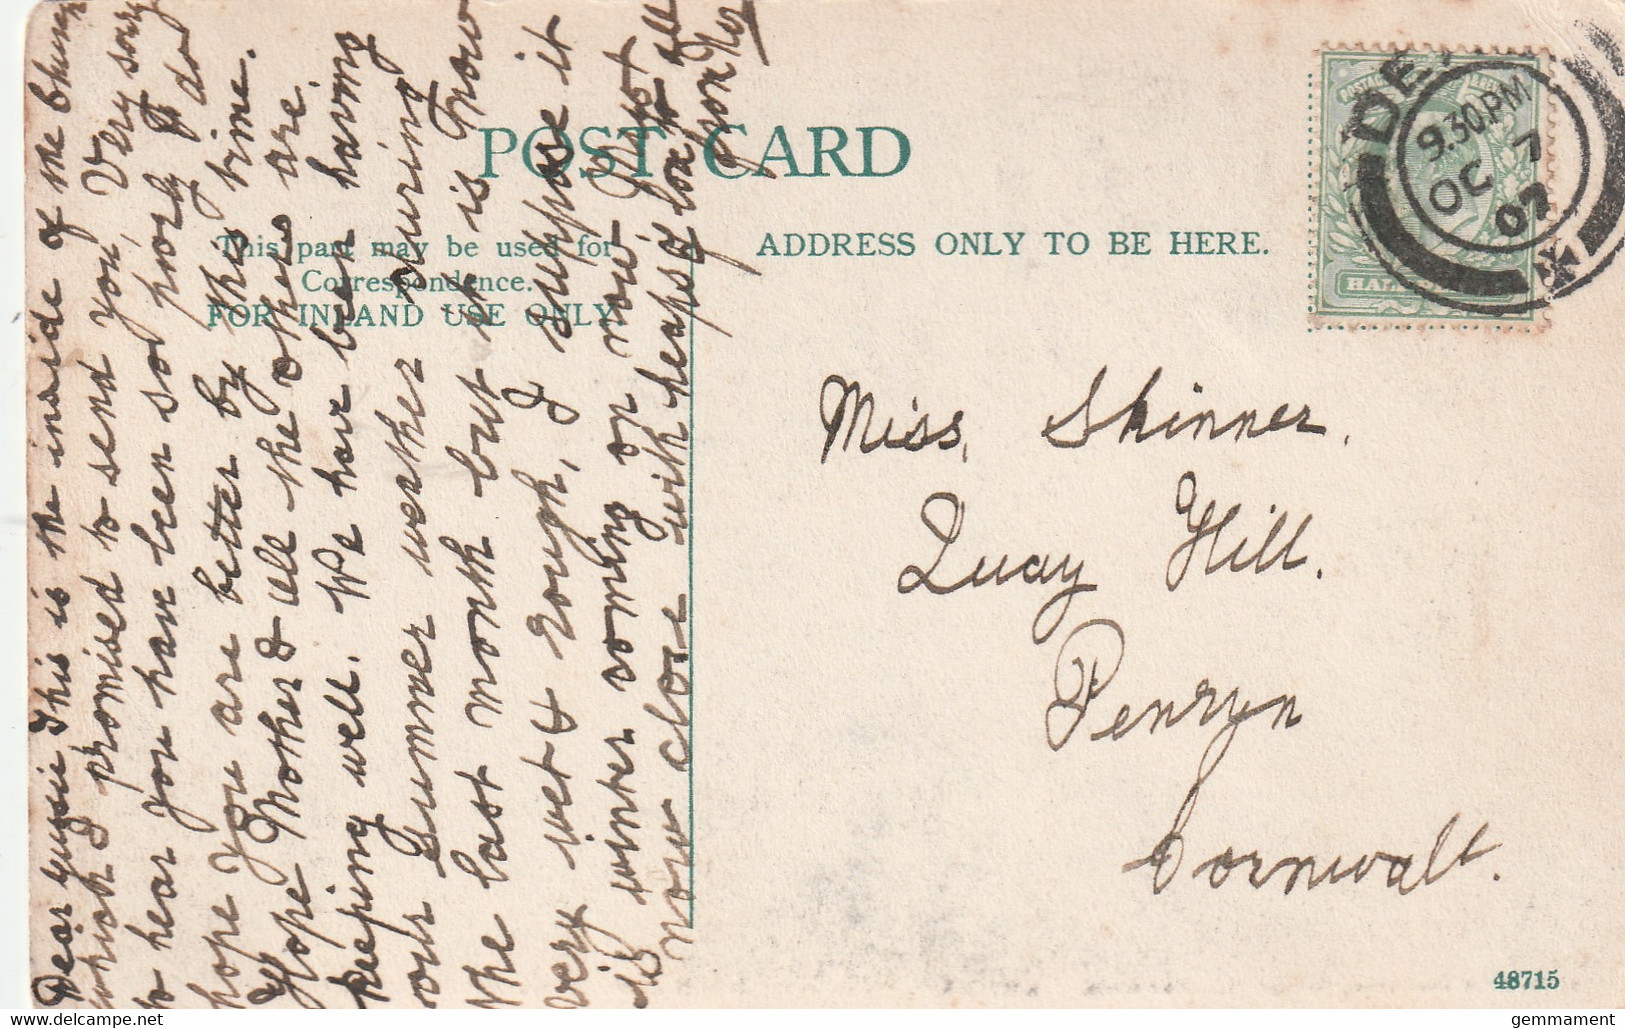 POST CARD
This part may be used for
Correspondence.
FOR INLAND USE ONLY
ADDRESS ONLY TO BE HERE.
HALF
DE
9.30.PM
OC 7
07
Miss, Skinner.
Quay Hill.
Penryn
Cornwall.
Dear This is the inside of the Church
which promised to send you, Very sorry
to hear you have been so poorly I do
hope you are better by this time.
Hope Mother & all the others are
keeping well. We have been having
our Summer weather during
the last month but it is now
very wet & rough, I suppose it
is winter coming on now Must
now close with heaps of love to all
from
48715
gemmament